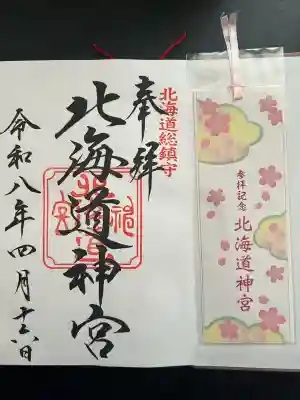 北海道総鎮守
奉拝
北海道神宮
令和八年四月十六日
参拝記念
北海道神宮